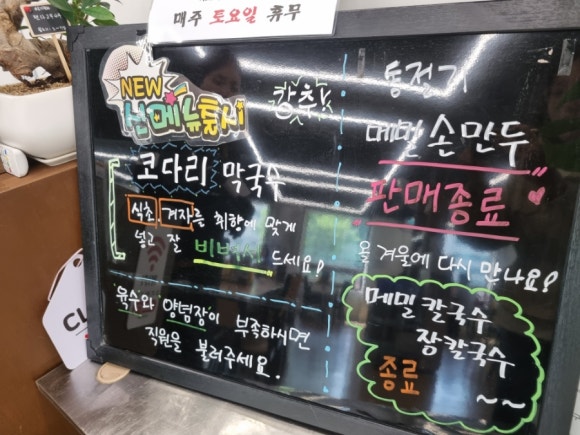 매주 토요일 휴무
NEW
신메뉴출시
강추!
코다리 막국수
식초 겨자를 취향에 맞게
넣고 잘 비비신 드세요!
육수와 양념장이 부족하시면
직원을 불러주세요.
통전기
메밀 손만두
판매종료
올 겨울에 다시 만나요!
메밀 칼국수
장칼국수
종료
~~